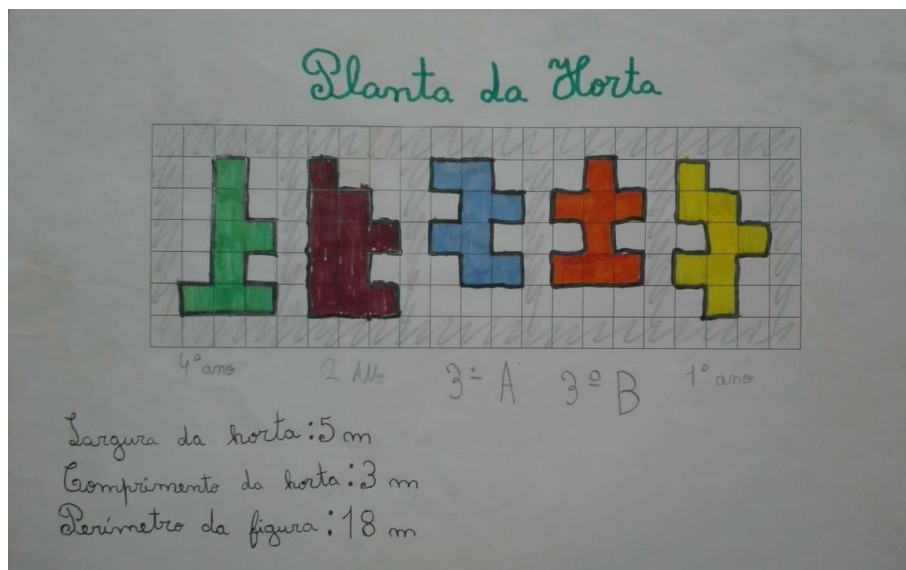 Planta da Horta
4º ano
2 Ano
3º A
3º B
1º ano
Largura da horta: 5 m
Comprimento da horta: 3 m
Perímetro da figura: 18 m